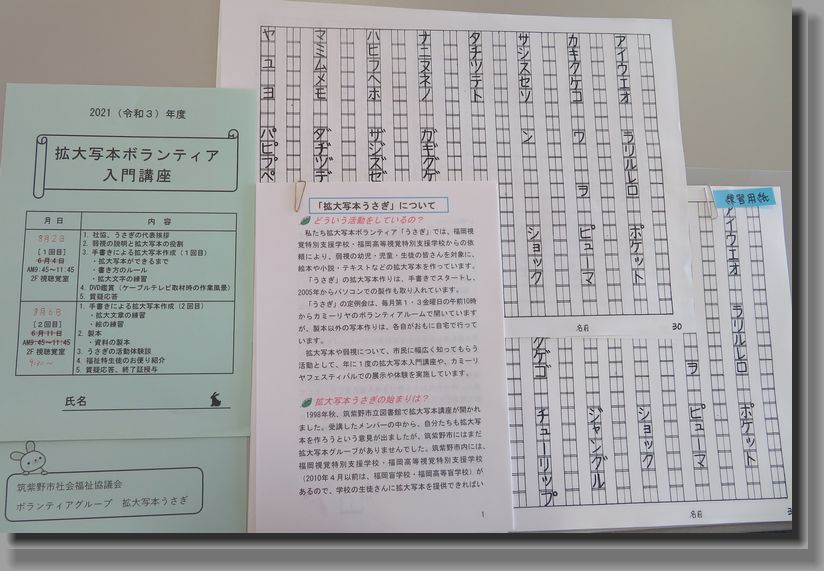 2021（令和３）年度
拡大写本ボランティア
入門講座
月 日
内 容
8月2日
［１回目］
6月4日
AM9:45～11:45
2F 視聴覚室
1. 社協、うさぎの代表挨拶
2. 弱視の説明と拡大写本の役割
3. 手書きによる拡大写本作成（１回目）
・拡大写本ができるまで
・書き方のルール
・拡大文字の練習
4. DVD鑑賞（ケーブルテレビ取材時の作業風景）
5. 質疑応答
［２回目］
6月11日
AM9:45～11:45
2F 視聴覚室
1. 手書きによる拡大写本作成（２回目）
・拡大文章の練習
・絵の練習
2. 製本
・資料の製本
3. うさぎの活動体験談
4. 福祉特生徒のお便り紹介
5. 質疑応答、終了証授与
氏名
筑紫野市社会福祉協議会
ボランティアグループ 拡大写本うさぎ
「拡大写本うさぎ」について
どういう活動をしているの？
私たち拡大写本ボランティア「うさぎ」では、福岡視
覚特別支援学校・福岡高等視覚特別支援学校からの依
頼により、弱視の幼児・児童・生徒の皆さんを対象に、
絵本や小説・テキストなどの拡大写本を作っています。
「うさぎ」の拡大写本作りは、手書きでスタートし、
2005年からパソコンでの製作も取り入れています。
「うさぎ」の定例会は、毎月第１・３金曜日の午前10時
からカミーリヤのボランティアルームで開いています
が、製本以外の写本作りは、各自がおもに自宅で行って
います。
拡大写本や弱視について、市民に幅広く知ってもらう
活動として、年に１度の拡大写本入門講座や、カミーリ
ヤフェスティバルでの展示や体験を実施しています。
拡大写本うさぎの始まりは？
1998年秋、筑紫野市立図書館で拡大写本講座が開かれ
ました。受講したメンバーの中から、自分たちも拡大写
本を作ろうという意見が出ましたが、筑紫野市にはまだ
拡大写本グループがありませんでした。筑紫野市内には、
福岡視覚特別支援学校・福岡高等視覚特別支援学校
（2010年４月以前は、福岡盲学校・福岡高等盲学校）が
あるので、学校の生徒さんに拡大写本を提供できればい
1
アイウエオ ラリルレロ ポケット
カキクケコ ワ ヲ ピューマ
サシスセソ ン ショック
タチツテト
ナニヌネノ ガギグゲ
ハヒフヘホ ザジズゼ
マミムメモ ダヂヅデ
ヤ ユ ヨ パピプペ
名前
30
練習用紙
アイウエオ ラリルレロ ポケット
ヲ ピューマ
ショック
ジャングル
チューリップ
グゲゴ
名前